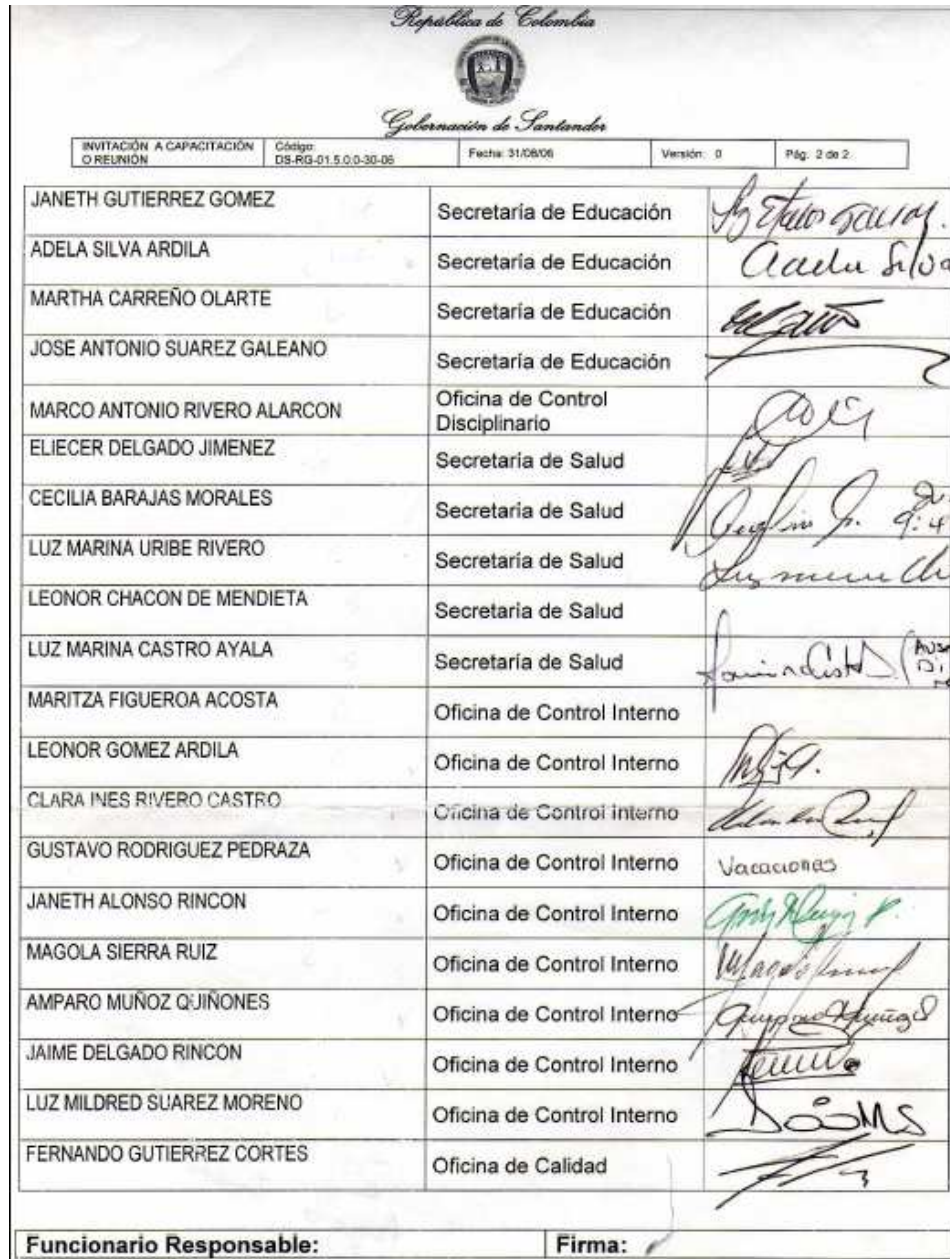 República de Colombia
Gobernación de Santander
INVITACIÓN A CAPACITACIÓN O REUNIÓN Código: DS-RG-01.5.0.0-30-06 Fecha: 31/08/06 Versión: 0 Pág. 2 de 2
JANETH GUTIERREZ GOMEZ Secretaría de Educación
ADELA SILVA ARDILA Secretaría de Educación Adela Silva
MARTHA CARREÑO OLARTE Secretaría de Educación
JOSE ANTONIO SUAREZ GALEANO Secretaría de Educación
MARCO ANTONIO RIVERO ALARCON Oficina de Control Disciplinario
ELIECER DELGADO JIMENEZ Secretaría de Salud
CECILIA BARAJAS MORALES Secretaría de Salud
LUZ MARINA URIBE RIVERO Secretaría de Salud
LEONOR CHACON DE MENDIETA Secretaría de Salud
LUZ MARINA CASTRO AYALA Secretaría de Salud
MARITZA FIGUEROA ACOSTA Oficina de Control Interno
LEONOR GOMEZ ARDILA Oficina de Control Interno
CLARA INES RIVERO CASTRO Oficina de Control Interno
GUSTAVO RODRIGUEZ PEDRAZA Oficina de Control Interno Vacaciones
JANETH ALONSO RINCON Oficina de Control Interno
MAGOLA SIERRA RUIZ Oficina de Control Interno
AMPARO MUÑOZ QUIÑONES Oficina de Control Interno
JAIME DELGADO RINCON Oficina de Control Interno
LUZ MILDRED SUAREZ MORENO Oficina de Control Interno
FERNANDO GUTIERREZ CORTES Oficina de Calidad
Funcionario Responsable: Firma: